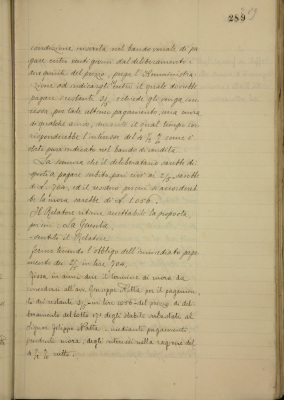 289
condizione inserita nel bando iniziale di pa
gare entro venti giorni dal deliberamento i
due quinti del prezzo, prega l'Amministra
zione ad indicargli entro il quale dovrebbe
pagare i restanti 3/5 e chiede gli venga con
cessa, per tale ulterior pagamento, una mora
di anni, durante il qual tempo cor
risponderebbe l'interesse del 4 ½ % come è
stato pure indicato nel bando di vendita.
La somma che il deliberatario sarebbe di
questi a pagare subito pari cioè ai 2/5 sarebbe
di L. 704, ed il residuo per cui si accorderebbe
la mora sarebbe di L. 1.056.
Il Relatore ritiene accettabile la proposta,
per cui: La Giunta,
udito il Relatore
fermo tenendo l'obbligo dell'immediato paga
mento dei 2/5 in lire 704,
fissa in anni due il termine di mora da
concedersi all'avv. Giuseppe Notta per il pagamen
to dei restanti 3/5 in lire 1056 del prezzo di deli
beramento del lotto 17° degli stabili
Signor Filippo Notta mediante pagamento
durante mora, degli interessi nella ragione del
4 ½ % netto.